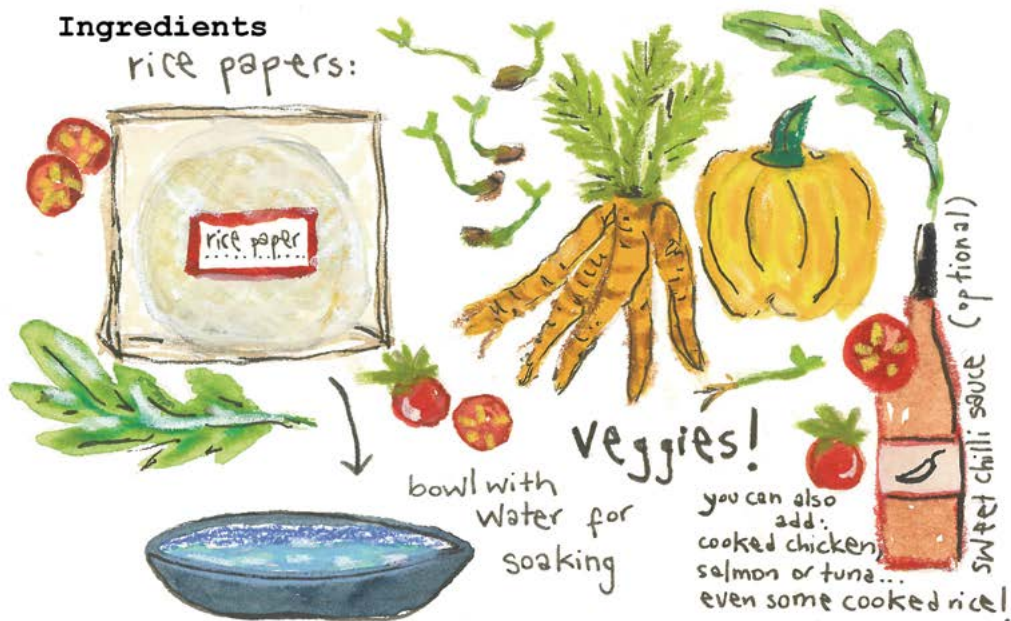 Ingredients
rice papers:
rice paper
bowl with
water for
soaking
veggies!
you can also
add:
cooked chicken,
salmon or tuna...
even some cooked rice!
sweet chilli sauce (optional)